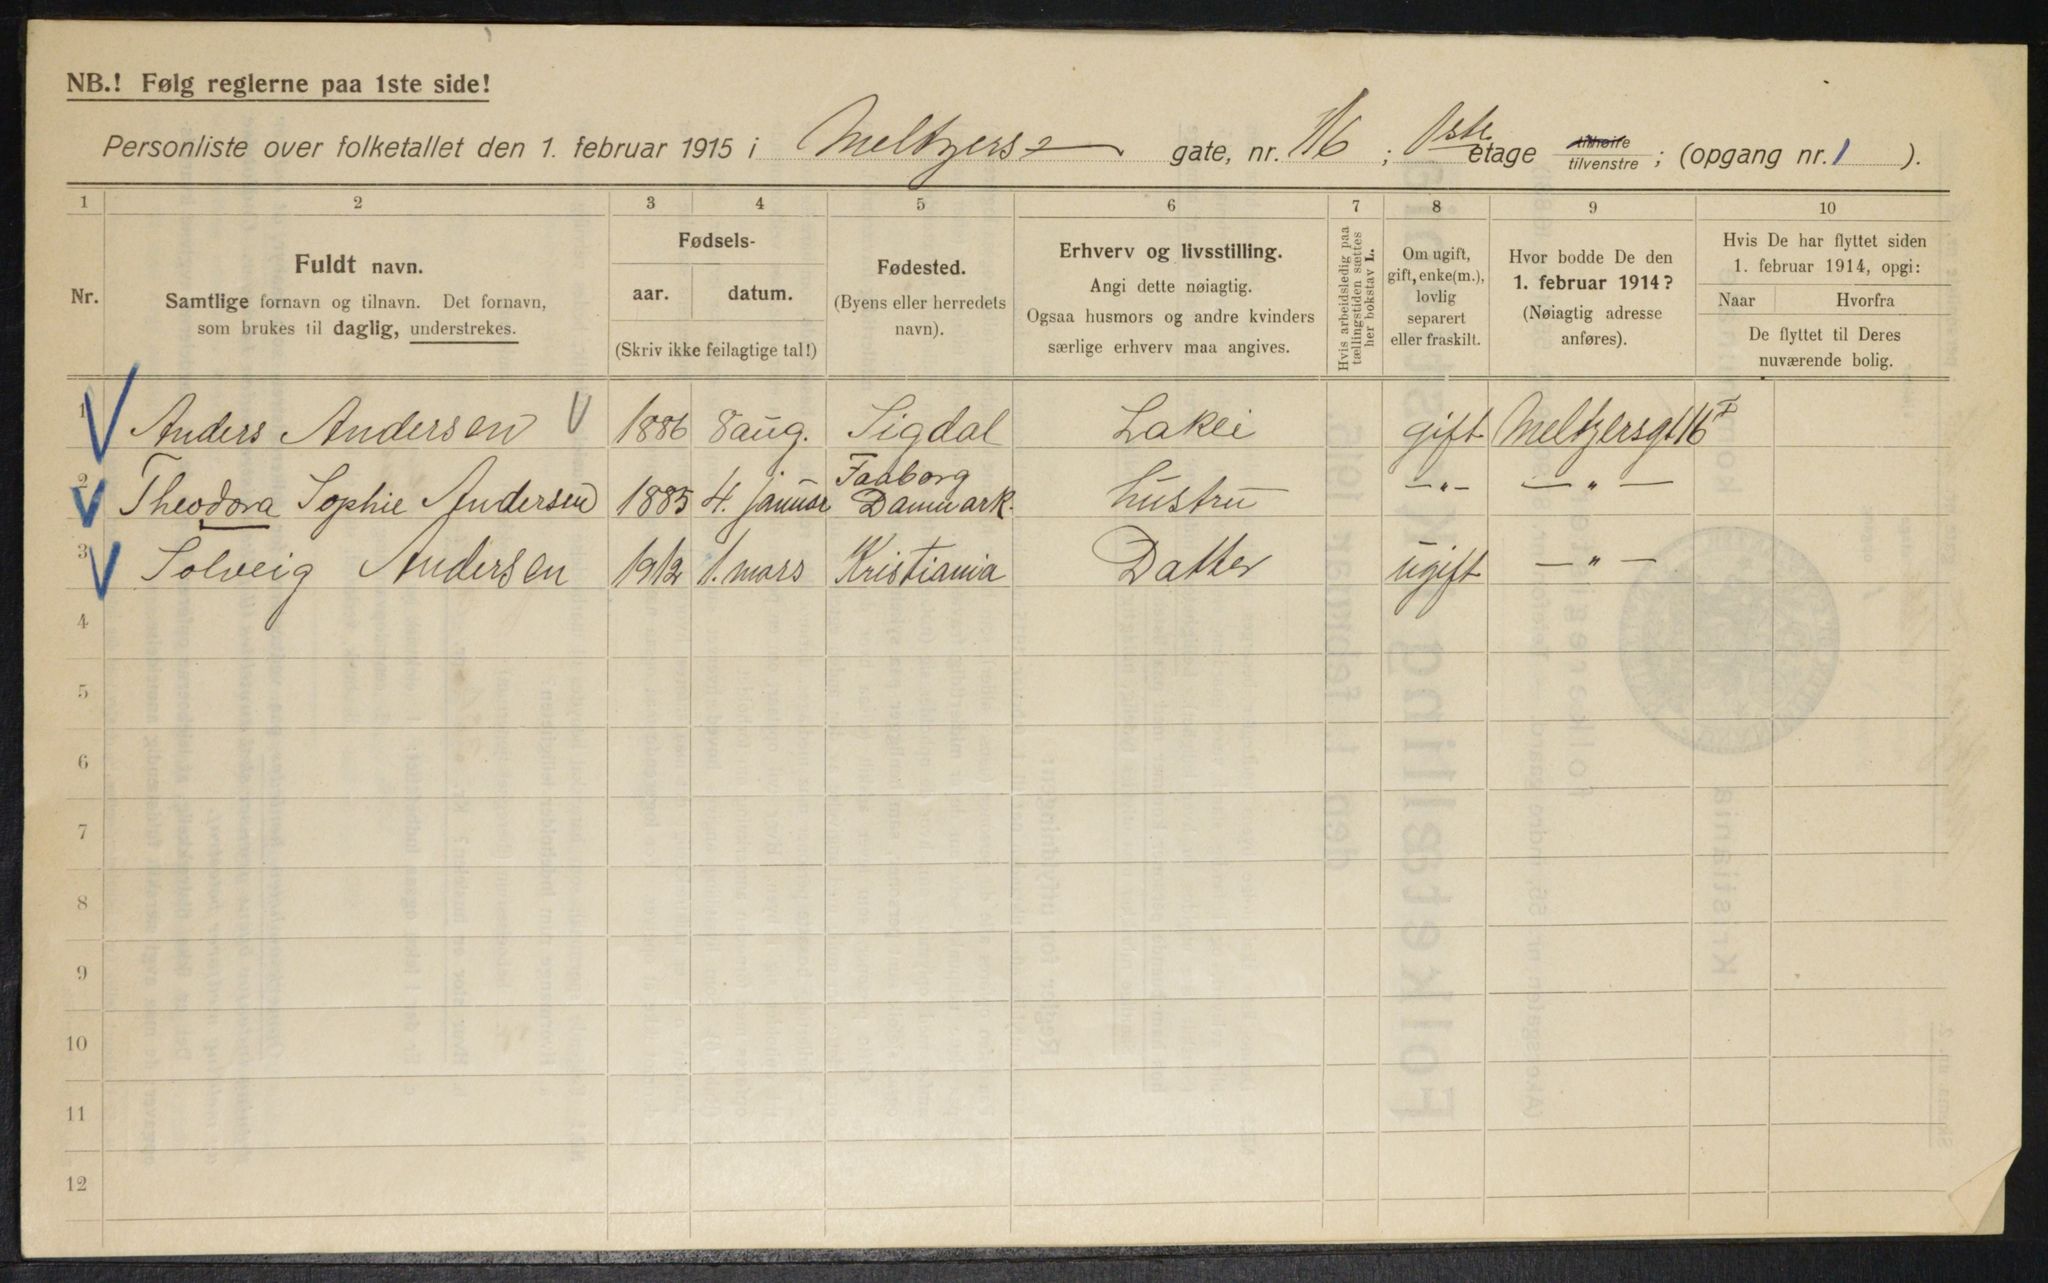 NB.! Følg reglerne paa 1ste side!
Personliste over folketallet den 1. februar 1915 i Meltzers gate, nr. 16 ; 1ste etage tilhøire tilvenstre ; (opgang nr. 1 ).
1 2 3 4 5 6 7 8 9 10
Nr.
Fuldt navn.
Samtlige fornavn og tilnavn. Det fornavn,
som brukes til daglig, understrekes.
Fødsels-
aar. datum.
(Skriv ikke feilagtige tal!)
Fødested.
(Byens eller herredets
navn).
Erhverv og livsstilling.
Angi dette nøiagtig.
Ogsaa husmors og andre kvinders
særlige erhverv maa angives.
Hvis arbeidsledig paa
tællingstiden sættes
her bokstav L.
Om ugift,
gift, enke(m.),
lovlig
separert
eller fraskilt.
Hvor bodde De den
1. februar 1914?
(Nøiagtig adresse
anføres).
Hvis De har flyttet siden
1. februar 1914, opgi:
Naar Hvorfra
De flyttet til Deres
nuværende bolig.
1 Anders Andersen 1886 8 aug. Sigdal Lakei gift Meltzersgt 16 I
2 Theodora Sophie Andersen 1885 4. januar Faaborg Danmark. hustru —"— —"—
3 Solveig Andersen 1912 1. mars Kristiania Datter ugift —"—
4
5
6
7
8
9
10
11
12